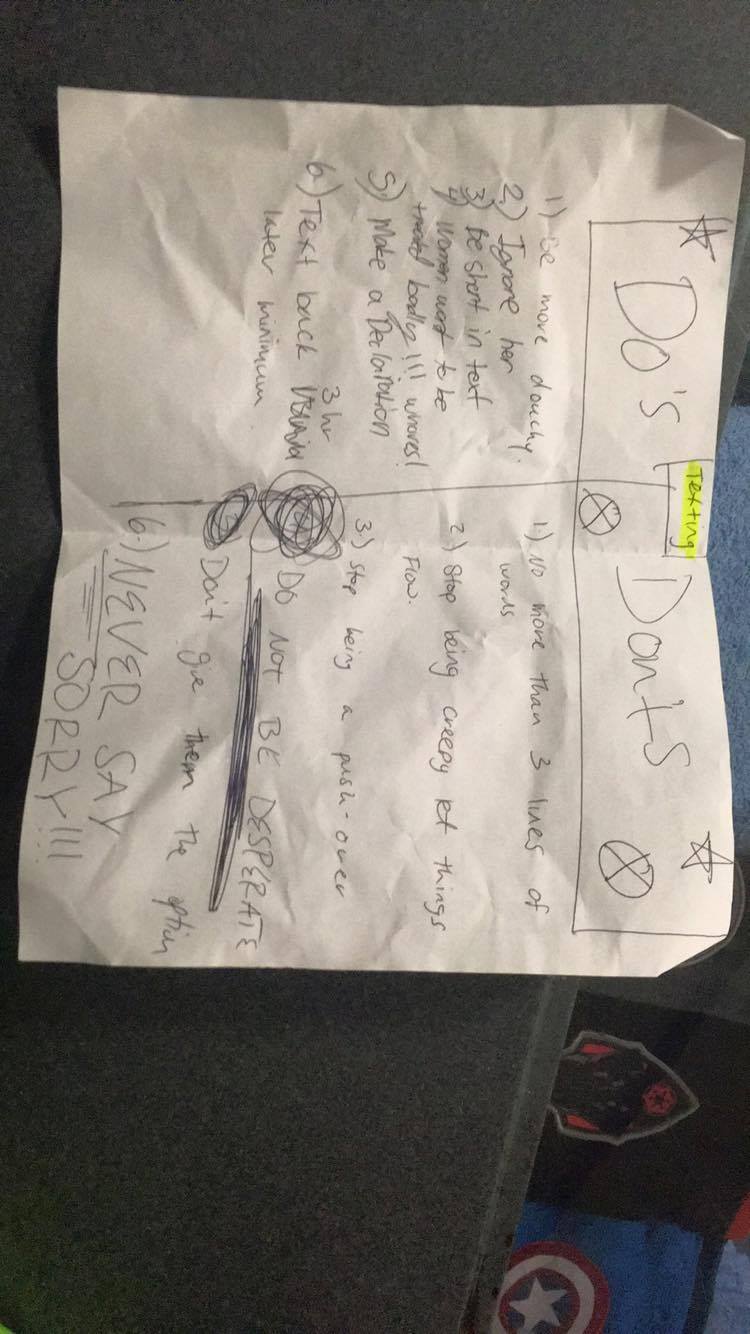 Texting
Do's
Don'ts
1) Be more douchy.
2.) Ignore her
3) Be short in text
4) Women want to be
treated badly!!! whores!
5.) Make a Declaration
3 hr
6.) Text back
later minimum
1) No more than 3 lines of
words
2) Stop being creepy let things
Flow.
3.) Stop being a push-over
DO NOT BE DESPERATE
Don't give them the option
6.) NEVER SAY
SORRY!!!